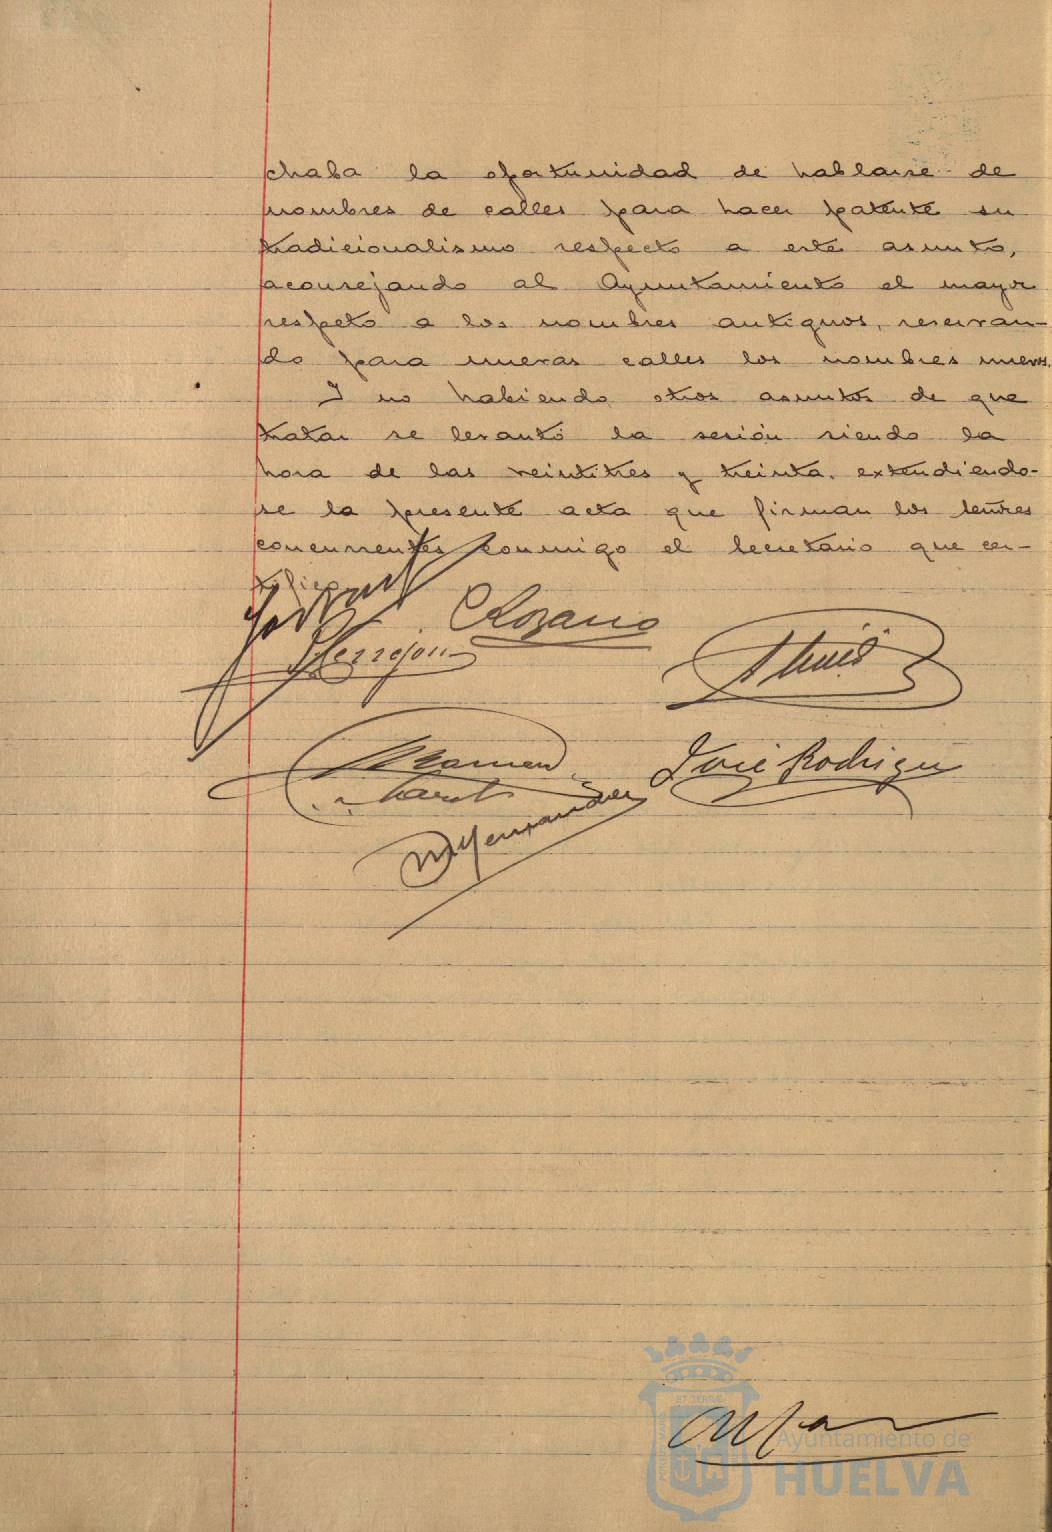 chaba la oportunidad de hablarse de
nombres de calles para hacer patente su
tradicionalismo respecto a este asunto,
aconsejando al Ayuntamiento el mayor
respeto a los nombres antiguos, reservan-
do para nuevas calles los nombres nuevos.
Y no habiendo otros asuntos de que
tratar se levantó la sesión siendo la
hora de las veintitres y treinta, extendiendo-
se la presente acta que firman los Señores
concurrentes conmigo el Secretario que cer-
tifico
Lozano
Terrejón
José Rodriguez
Hernandez
Ayuntamiento de
HUELVA